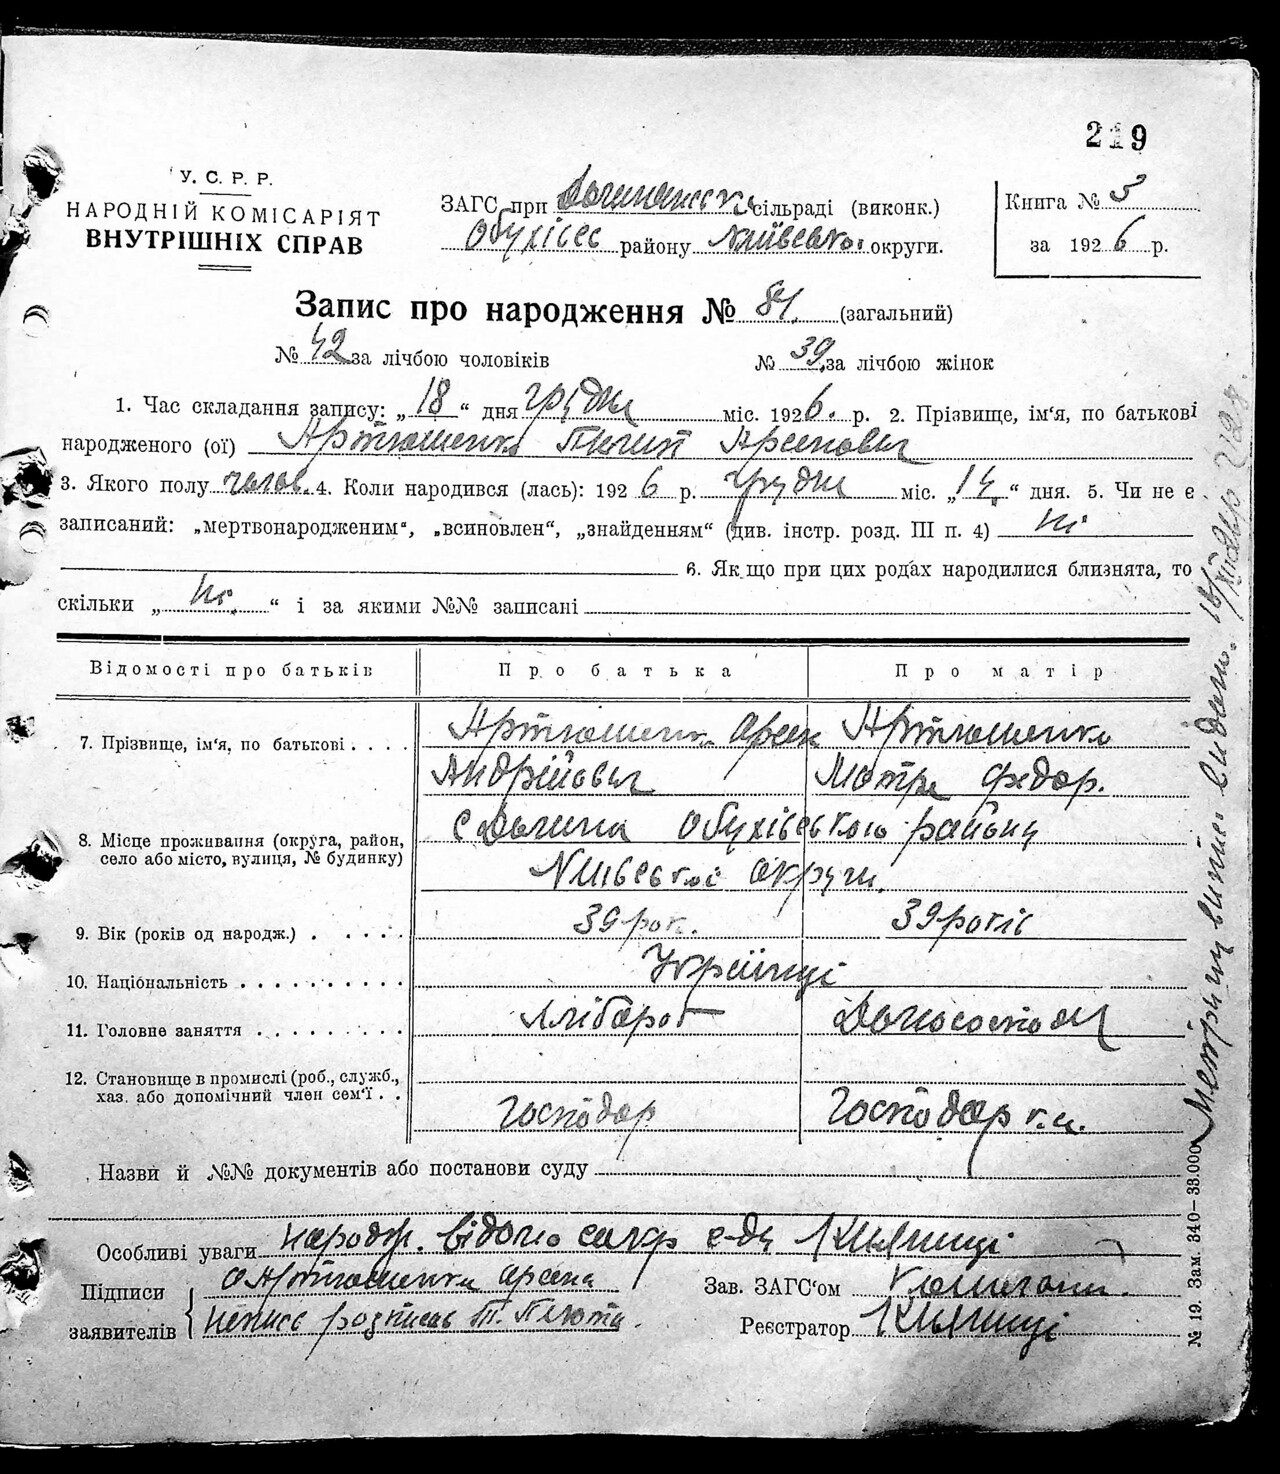 219
У. С. Р. Р.
НАРОДНІЙ КОМІСАРІЯТ
ВНУТРІШНІХ СПРАВ
ЗАГС при сільраді (виконк.)
Обухівсь району Київської округи.
Книга № 5
за 1926 р.
Запис про народження № 81. (загальний)
№ 42 за лічбою чоловіків № 39 за лічбою жінок
1. Час складання запису: „18“ дня грудня міс. 1926. р. 2. Прізвище, ім'я, по батькові
народженого (ої) Артюшенко Арсенович
3. Якого полу чолов. 4. Коли народився (лась): 1926 р. грудня міс. „14“ дня. 5. Чи не є
записаний: „мертвонародженим“, „всиновлен“, „знайденням“ (див. інстр. розд. III п. 4) ні
6. Якщо при цих родах народилися близнята, то
скільки „ні.“ і за якими №№ записані
Відомості про батьків Про батька Про матір
7. Прізвище, ім'я, по батькові . . . . Артюшенко Арсен Артюшенко
Андрійович Мотря Федор.
8. Місце проживання (округа, район,
село або місто, вулиця, № будинку)
с Долина Обухівського району
Київської округи.
9. Вік (років од народж.) . . . . . 39 рок. 39 років
10. Національність . . . . . . . . . . Українці
11. Головне заняття . . . . . . . . . Хлібороб
12. Становище в промислі (роб., служб.,
хаз. або допомічний член сем'ї . .
Господар Господарк.
Назви й №№ документів або постанови суду
Особливі уваги народж. відомо
Підписи
заявителів
Артюшенка Арсена
непись розписавсь
Зав. ЗАГС'ом
Реєстратор
№ 19. Зам. 340—33.000
Метричну випис видано.